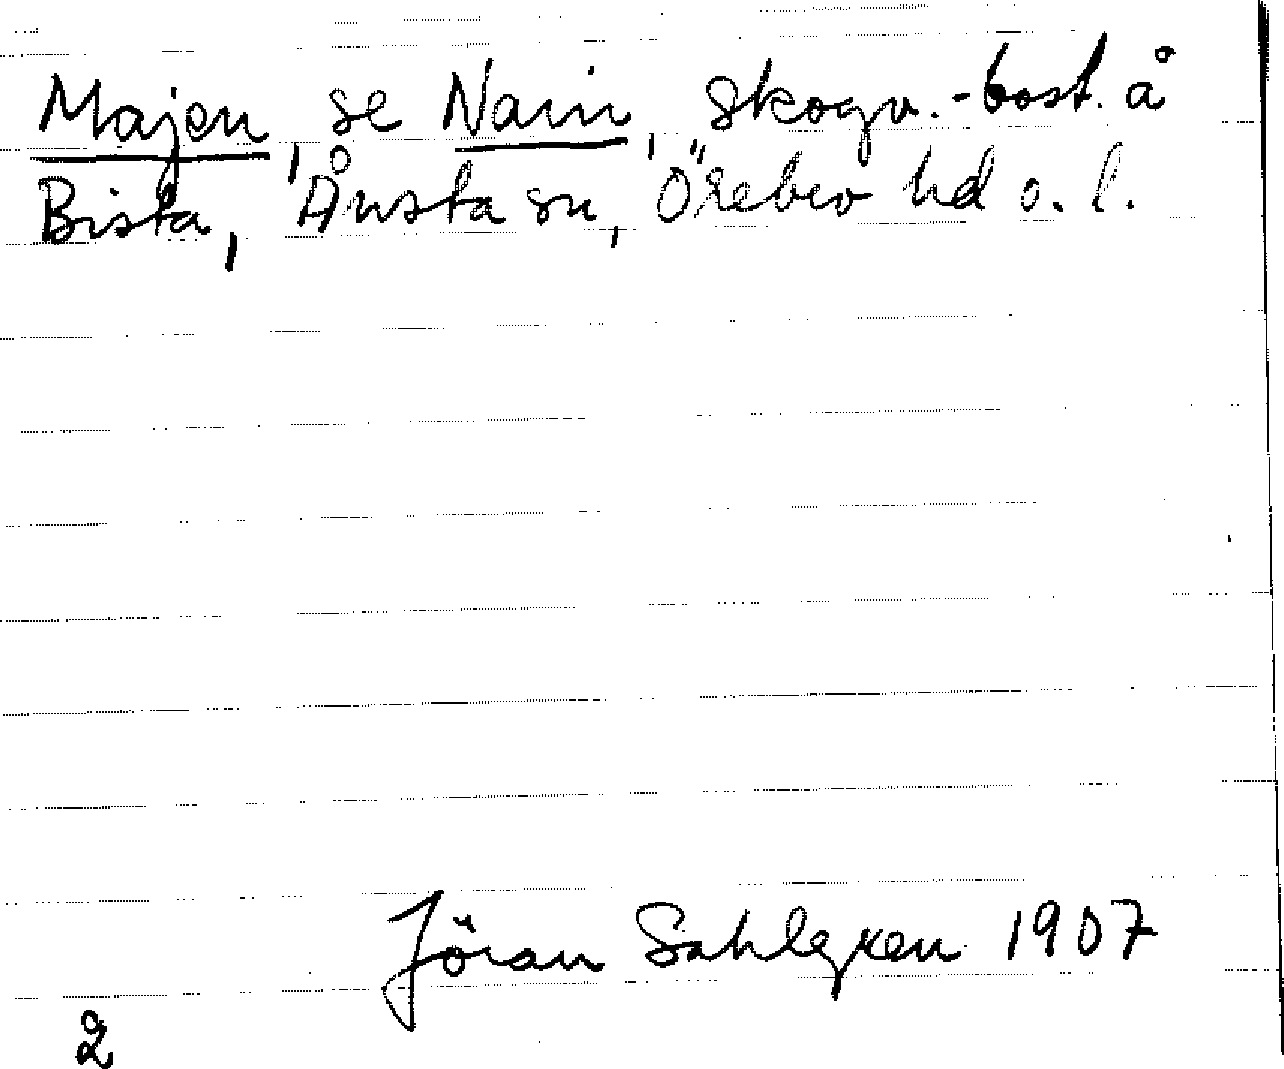 Majen, se Nain, skogv.-bost. å
Bista, Ånsta sn, Örebro hd o. l.
Jöran Sahlgren 1907
2